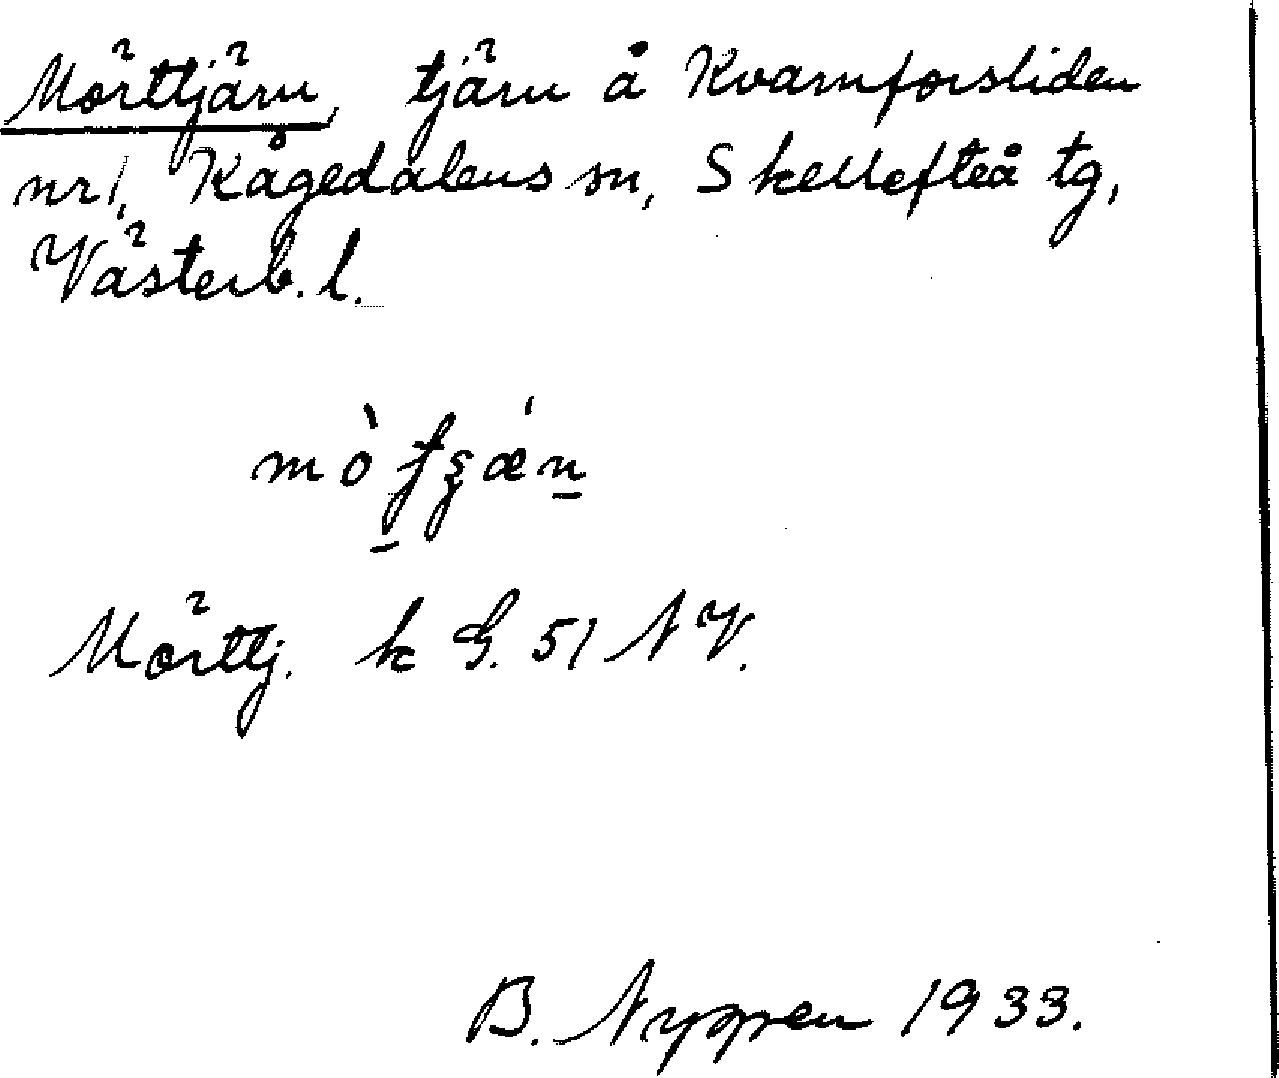 Mörttjärn, tjärn å Kvarnforsliden
nr 1, Kågedalens sn, Skellefteå tg,
Västerb. l.
Mörttj. k G. 51 NV.
B. Nyggren 1933.